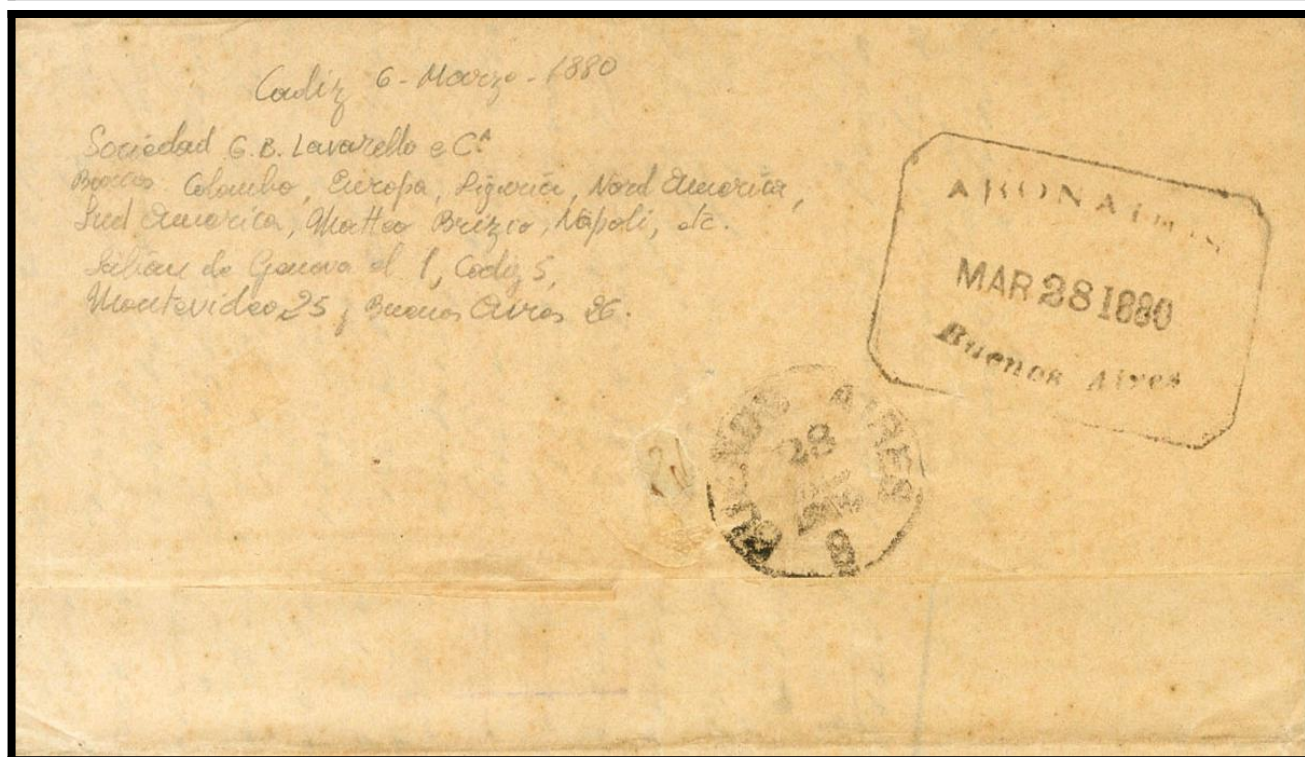 Cadiz 6-Marzo-1880
Sociedad G.B. Lavarello e Cª
Barcos Colombo, Europa, Liguria, Nord America,
Sud America, Matteo Brizio, Napoli, etc.
Salian de Genova el 1, Cadiz 5,
Montevideo 25 y Buenos Aires 26.
MAR 28 1880
Buenos Aires
BUENOS AIRES
28